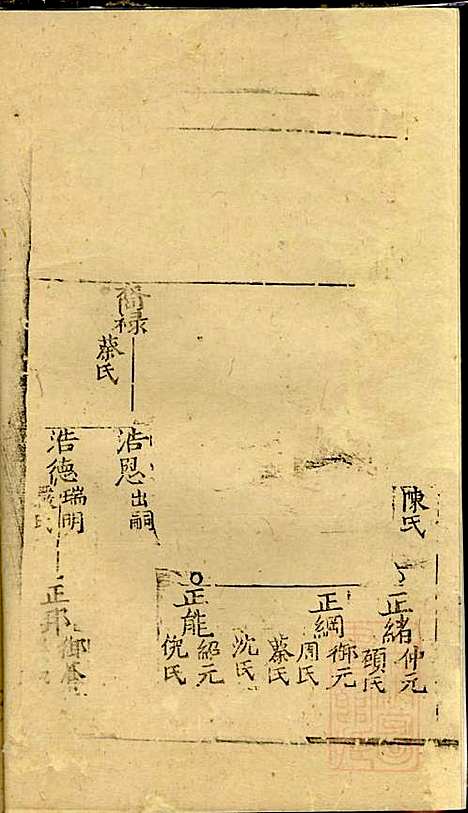 陳氏
正緒
仲元
頭氏
正綱
御元
周氏
蔡氏
沈氏
正能
紹元
倪氏
裔祿
蔡氏
浩恩
出嗣
浩德
瑞明
氏
正邦
御